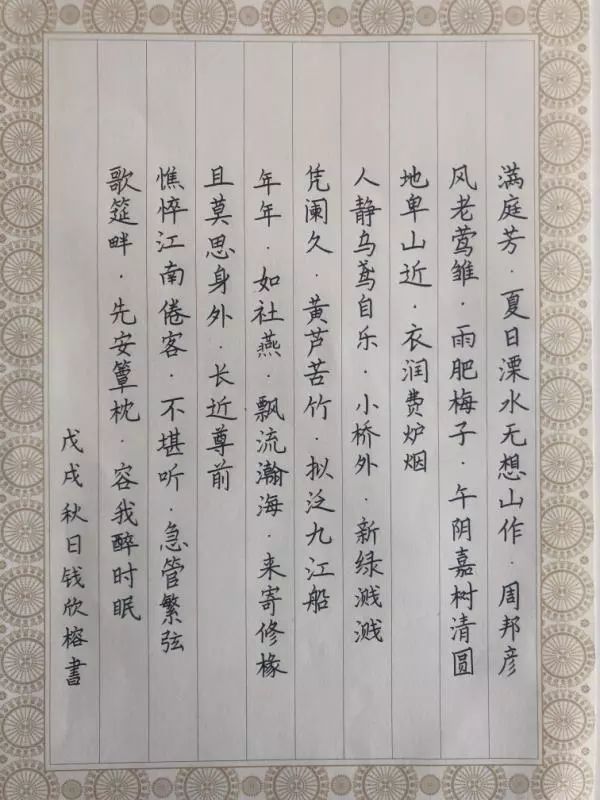 满庭芳·夏日溧水无想山作·周邦彦
风老莺雏·雨肥梅子·午阴嘉树清圆
地卑山近·衣润费炉烟
人静乌鸢自乐·小桥外·新绿溅溅
凭阑久·黄芦苦竹·拟泛九江船
年年·如社燕·飘流瀚海·来寄修椽
且莫思身外·长近尊前
憔悴江南倦客·不堪听·急管繁弦
歌筵畔·先安簟枕·容我醉时眠
戊戌秋日钱欣榕書